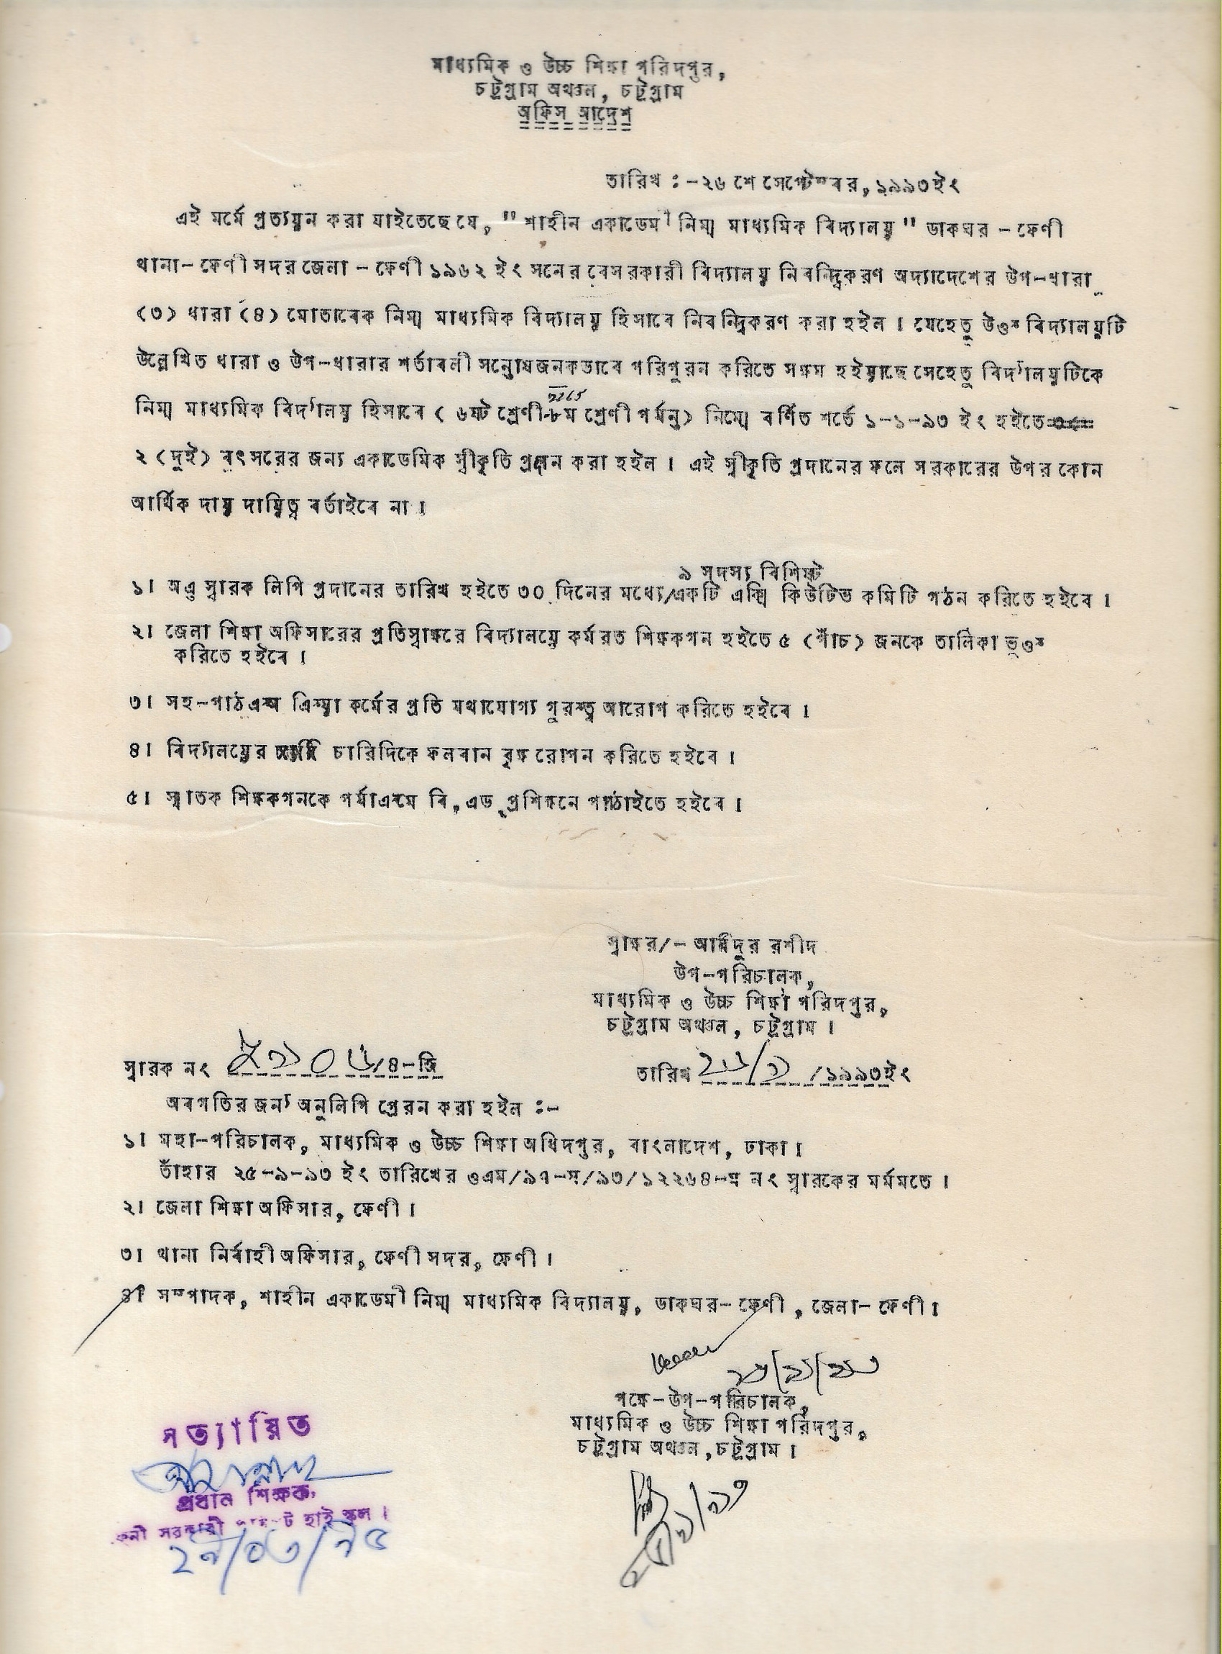 মাধ্যমিক ও উচ্চ শিক্ষা পরিদপ্তর,
চট্টগ্রাম অঞ্চল, চট্টগ্রাম
অফিস আদেশ
তারিখ :-২৬ শে সেপ্টেম্বর, ১৯৯৩ইং
এই মর্মে প্রত্যয়ন করা যাইতেছে যে, "শাহীন একাডেমী নিম্ন মাধ্যমিক বিদ্যালয়" ডাকঘর - ফেণী
থানা- ফেণী সদর জেলা - ফেণী ১৯৬২ ইং সনের বেসরকারী বিদ্যালয় নিবন্দ্বিকরণ অদ্যাদেশের উপ-ধারা
(৩) ধারা (৪) মোতাবেক নিম্ন মাধ্যমিক বিদ্যালয় হিসাবে নিবন্দ্বিকরণ করা হইল। যেহেতু উক্ত বিদ্যালয়টি
উল্লেখিত ধারা ও উপ-ধারার শর্তাবলী সন্তোষজনকভাবে পরিপুরন করিতে সক্ষম হইয়াছে সেহেতু বিদ্যালয়টিকে
নিম্ন মাধ্যমিক বিদ্যালয় হিসাবে (৬ষ্ট শ্রেণী-৮ম শ্রেণী পর্যন্ত) নিম্নে বর্ণিত শর্তে ১-১-৯৩ ইং হইতে
২ (দুই) বৎসরের জন্য একাডেমিক স্বীকৃতি প্রদান করা হইল। এই স্বীকৃতি প্রদানের ফলে সরকারের উপর কোন
আর্থিক দায় দায়িত্ব বর্তাইবে না।
৯ সদস্য বিশিষ্ট
১। অত্র স্মারক লিপি প্রদানের তারিখ হইতে ৩০ দিনের মধ্যে/একটি এক্সি কিউটিভ কমিটি গঠন করিতে হইবে।
২। জেলা শিক্ষা অফিসারের প্রতিস্বাক্ষরে বিদ্যালয়ে কর্মরত শিক্ষকগন হইতে ৫ (পাঁচ) জনকে তালিকা ভূক্ত
করিতে হইবে।
৩। সহ-পাঠক্রম ক্রিয়া কর্মের প্রতি যথাযোগ্য গুরুত্ব আরোপ করিতে হইবে।
৪। বিদ্যালয়ের চারিদিকে ফলবান বৃক্ষ রোপন করিতে হইবে।
৫। স্নাতক শিক্ষকগনকে পর্যাক্রমে বি,এড প্রশিক্ষনে পাঠাইতে হইবে।
স্বাক্ষর/- আমিদুর রশীদ
উপ-পরিচালক,
মাধ্যমিক ও উচ্চ শিক্ষা পরিদপ্তর,
চট্টগ্রাম অঞ্চল, চট্টগ্রাম।
স্মারক নং ৫৯১০৬/৪-জি
তারিখ ২৬/৯/১৯৯৩ইং
অবগতির জন্য অনুলিপি প্রেরন করা হইল :-
১। মহা-পরিচালক, মাধ্যমিক ও উচ্চ শিক্ষা অধিদপ্তর, বাংলাদেশ, ঢাকা।
তাঁহার ২৫-৯-৯৩ ইং তারিখের ওএম/৯৭-ম/৯৩/১২২৬৪-ম নং স্মারকের মর্মমতে।
২। জেলা শিক্ষা অফিসার, ফেণী।
৩। থানা নির্বাহী অফিসার, ফেণী সদর, ফেণী।
৪। সম্পাদক, শাহীন একাডেমী নিম্ন মাধ্যমিক বিদ্যালয়, ডাকঘর- ফেণী, জেলা- ফেণী।
২৬/৯/৯৩
পক্ষে-উপ-পরিচালক,
মাধ্যমিক ও উচ্চ শিক্ষা পরিদপ্তর,
চট্টগ্রাম অঞ্চল, চট্টগ্রাম।
সত্যায়িত
প্রধান শিক্ষক,
ফেনী সরকারী পাইলট হাই স্কুল।